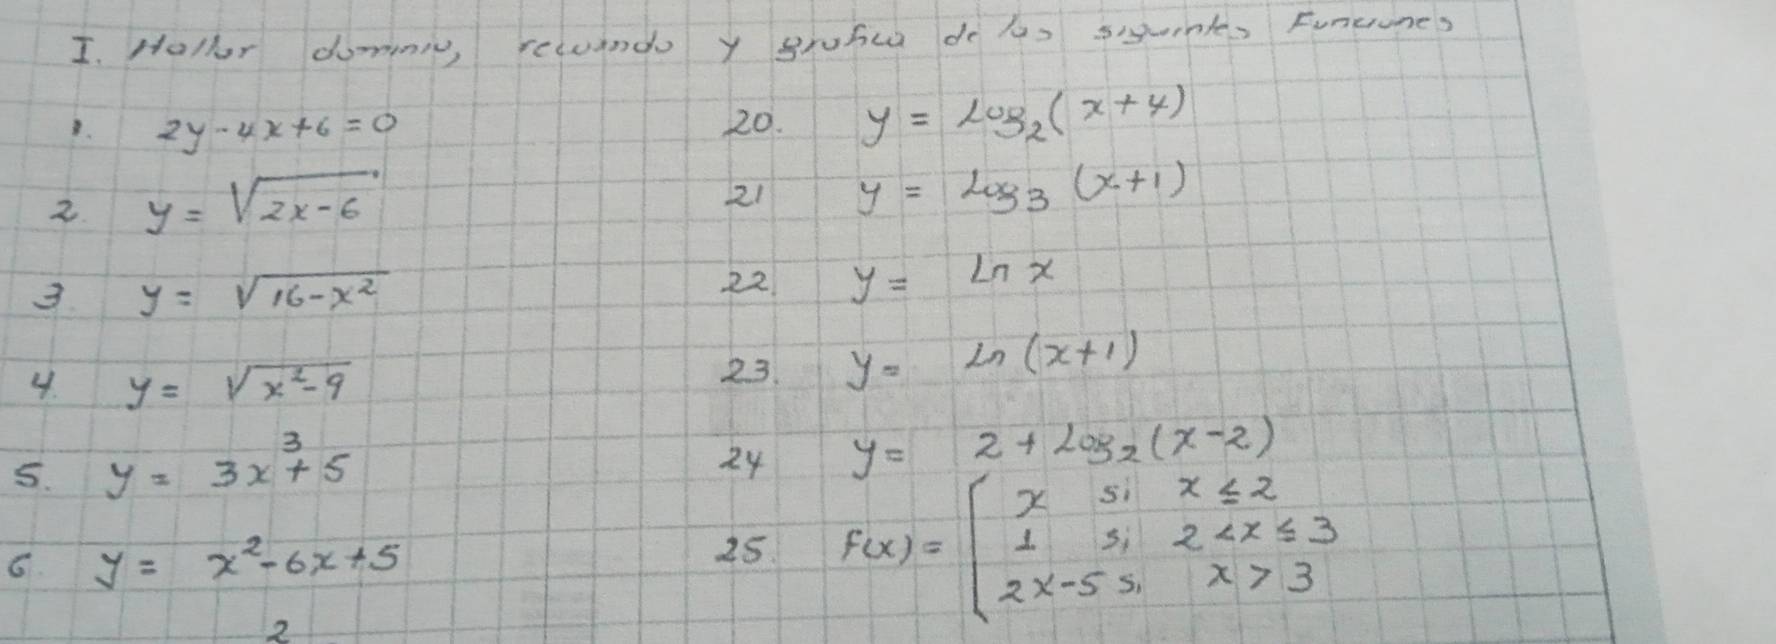 I. Hallar dominio, recorrido y grafica de las siguientes Funciones
1. 2y-4x+6=0
2. y = √(2x-6)
3. y = √(16-x²)
4. y = √(x²-9)
5. y = 3x³+5
6. y = x²-6x+5
2
20. y = Log₂(x+4)
21 y = Log₃ (x+1)
22. y = Ln x
23. y = Ln (x+1)
24 y = 2 + Log₂(x-2)
x si x ≤ 2
25. F(x) = { 1 si 2 < x ≤ 3
2x-5 si x > 3